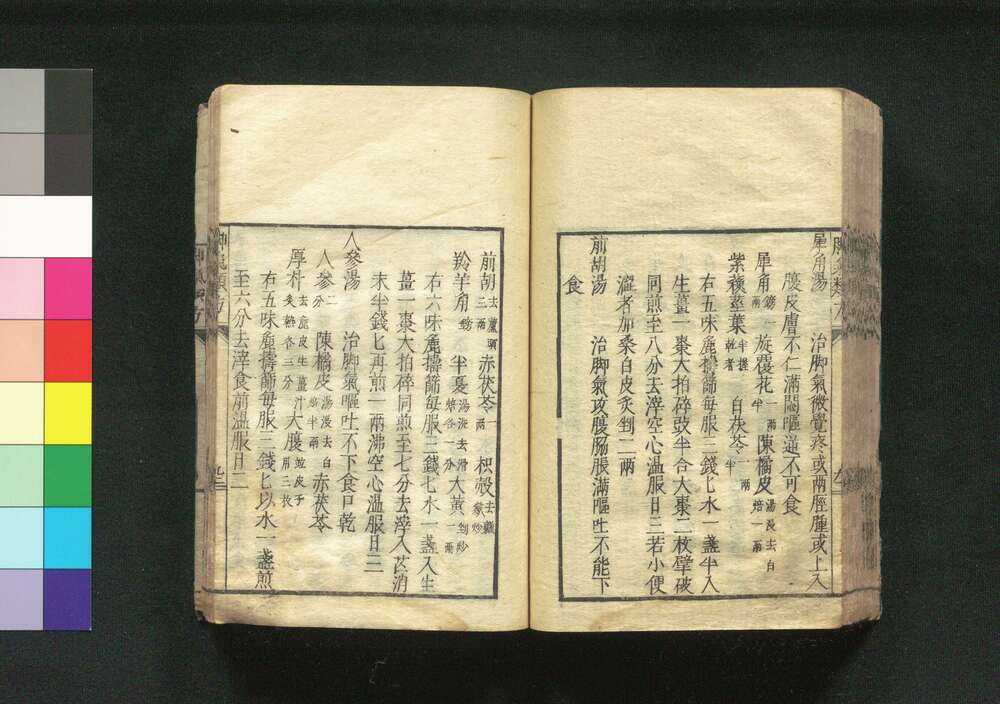 犀角湯　治脚氣微覺疼或兩脛腫或上入
腹皮膚不仁滿悶嘔逆不可食
犀角鎊一兩旋覆花一兩半陳橘皮湯浸去白焙一兩
紫蘇莖葉半握乾者白茯苓一兩半
右五味麁擣篩每服三錢匕水一盞半入
生薑一棗大拍碎豉半合大棗二枚擘破
同煎至八分去滓空心溫服日三若小便
澀者加桑白皮炙剉二兩
前胡湯　治脚氣攻腹脇脹滿嘔吐不能下
食
前胡去蘆頭三兩赤茯苓一兩枳殼去瓤麩炒
羚羊角鎊半夏湯洗去滑焙各一分大黃剉炒一兩
右六味麁擣篩每服三錢匕水一盞入生
薑一棗大拍碎同煎至七分去滓入芒消
末半錢匕再煎一兩沸空心溫服日三
人參湯　治脚氣嘔吐不下食口乾
人參二分陳橘皮湯浸去白焙半兩赤茯苓
厚朴去麄皮生薑汁炙熟各三分大腹并皮子用三枚
右五味麁擣篩每服三錢匕以水一盞煎
至六分去滓食前溫服日二